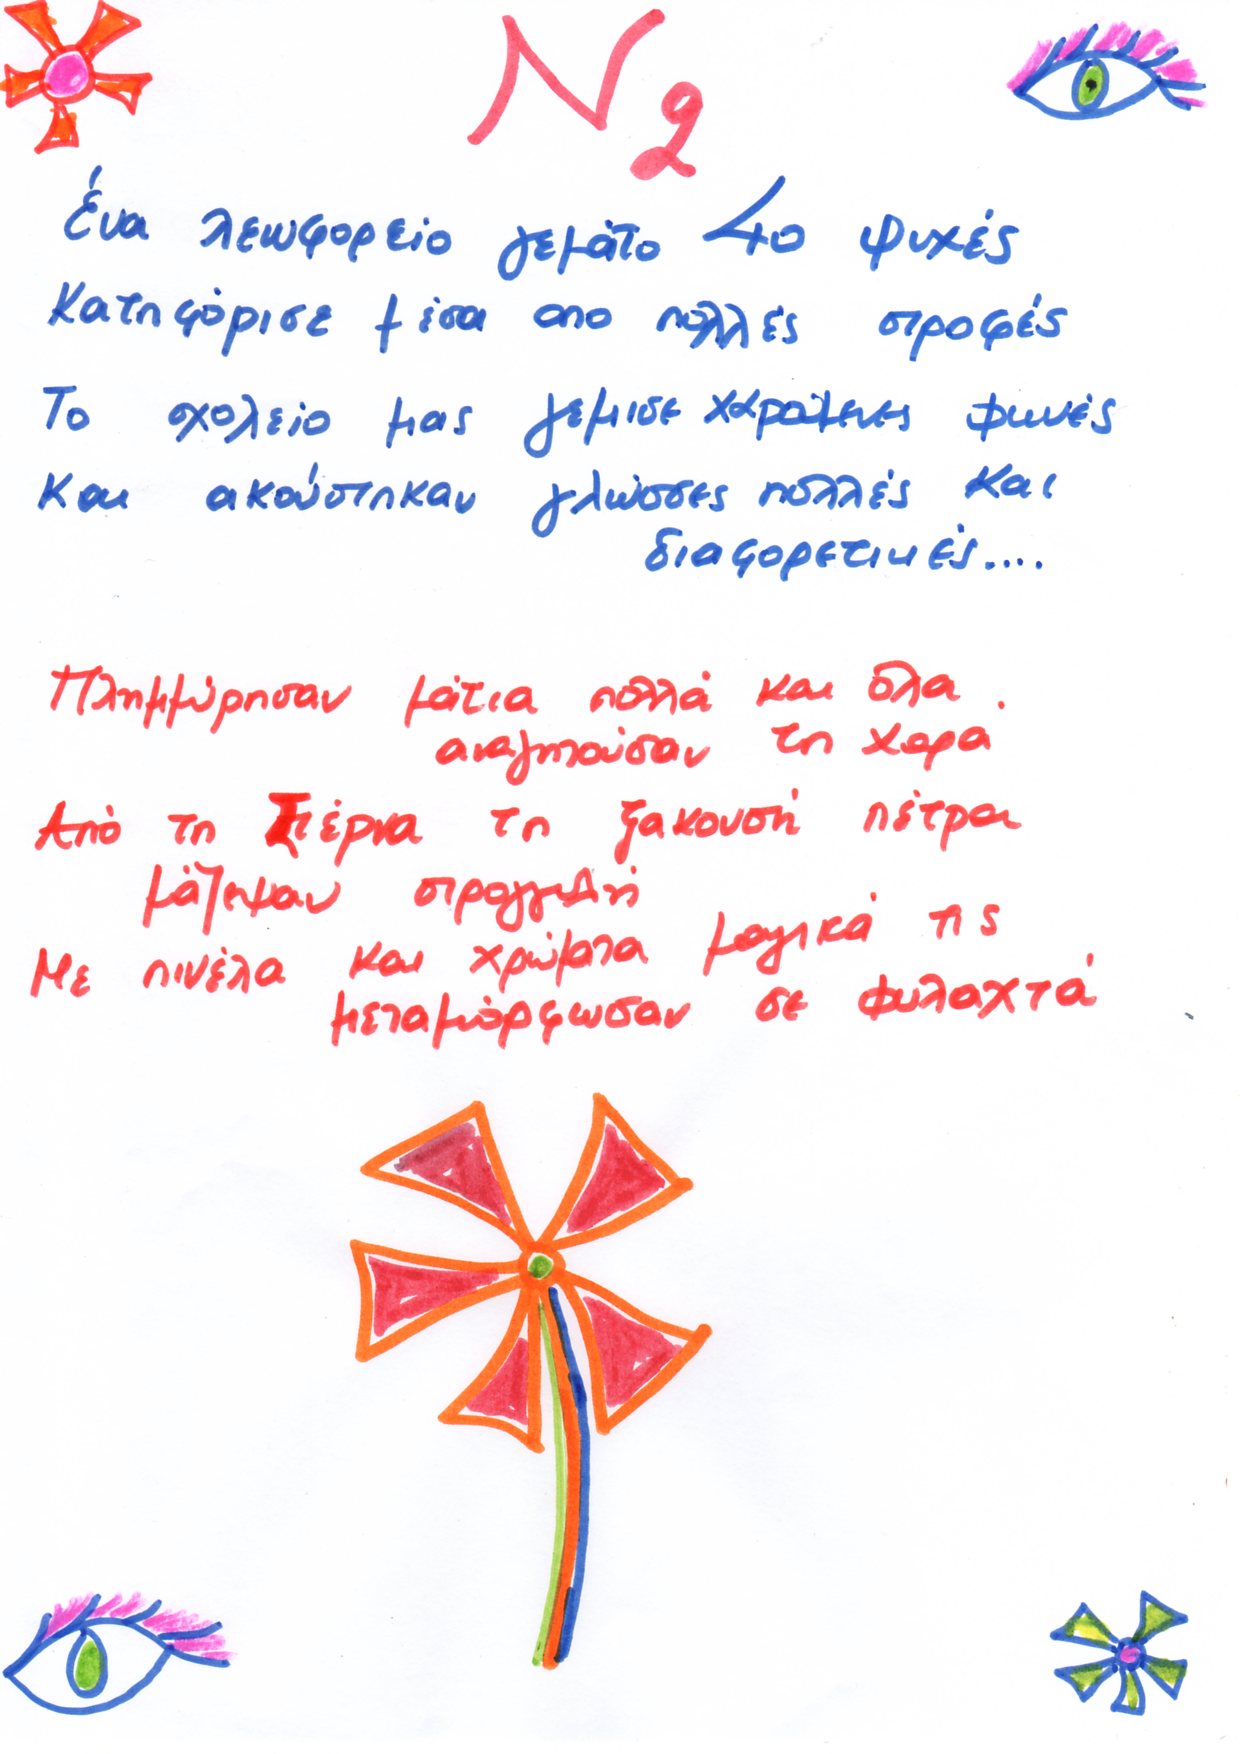 N2
Ένα λεωφορείο γεμάτο 40 ψυχές
Κατηφόρισε μέσα απο πολλές στροφές
Το σχολείο μας γεμισε χαρούμενες φωνές
Και ακούστηκαν γλώσσες πολλές και
διαφορετικές....
Πλημμύρησαν μάτια πολλά και όλα
αναζητούσαν τη χαρα
Από τη Στέρνα τη ξακουστή πέτρα
μάζεψαν στρογγυλή
Με πινέλα και χρώματα μαγικά τις
μεταμόρφωσαν σε φυλαχτά